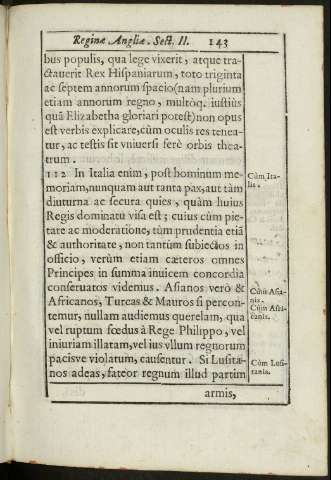 Reginæ Angliæ. Sect. II. 143
bus populis, qua lege vixerit, atque tra-
ctauerit Rex Hispaniarum, toto triginta
ac septem annorum spacio (nam plurium
etiam annorum regno, multòq. iustiùs
quã Elizabetha gloriari potest) non opus
est verbis explicare, cùm oculis res tenea-
tur, ac testis sit vniuersi ferè orbis thea-
trum.
112 In Italia enim, post hominum me-
moriam, nunquam aut tanta pax, aut tàm
diuturna ac secura quies, quàm huius
Regis dominatu visa est; cuius cùm pie-
tate ac moderatione, tùm prudentia etiã
& authoritate, non tantùm subiectos in
officio, verùm etiam cæteros omnes
Principes in summa inuicem concordia
conseruatos videmus. Asianos verò &
Africanos, Turcas & Mauros si percon-
temur, nullam audiemus querelam, qua
vel ruptum fœdus à Rege Philippo, vel
iniuriam illatam, vel ius vllum regnorum
pacisve violatum, causentur. Si Lusita-
nos adeas, fateor regnum illud partim
armis,
Cùm Ita-
lis.
Cùm Asia-
nis.
Cùm Afri-
canis.
Cùm Lusi-
tania.